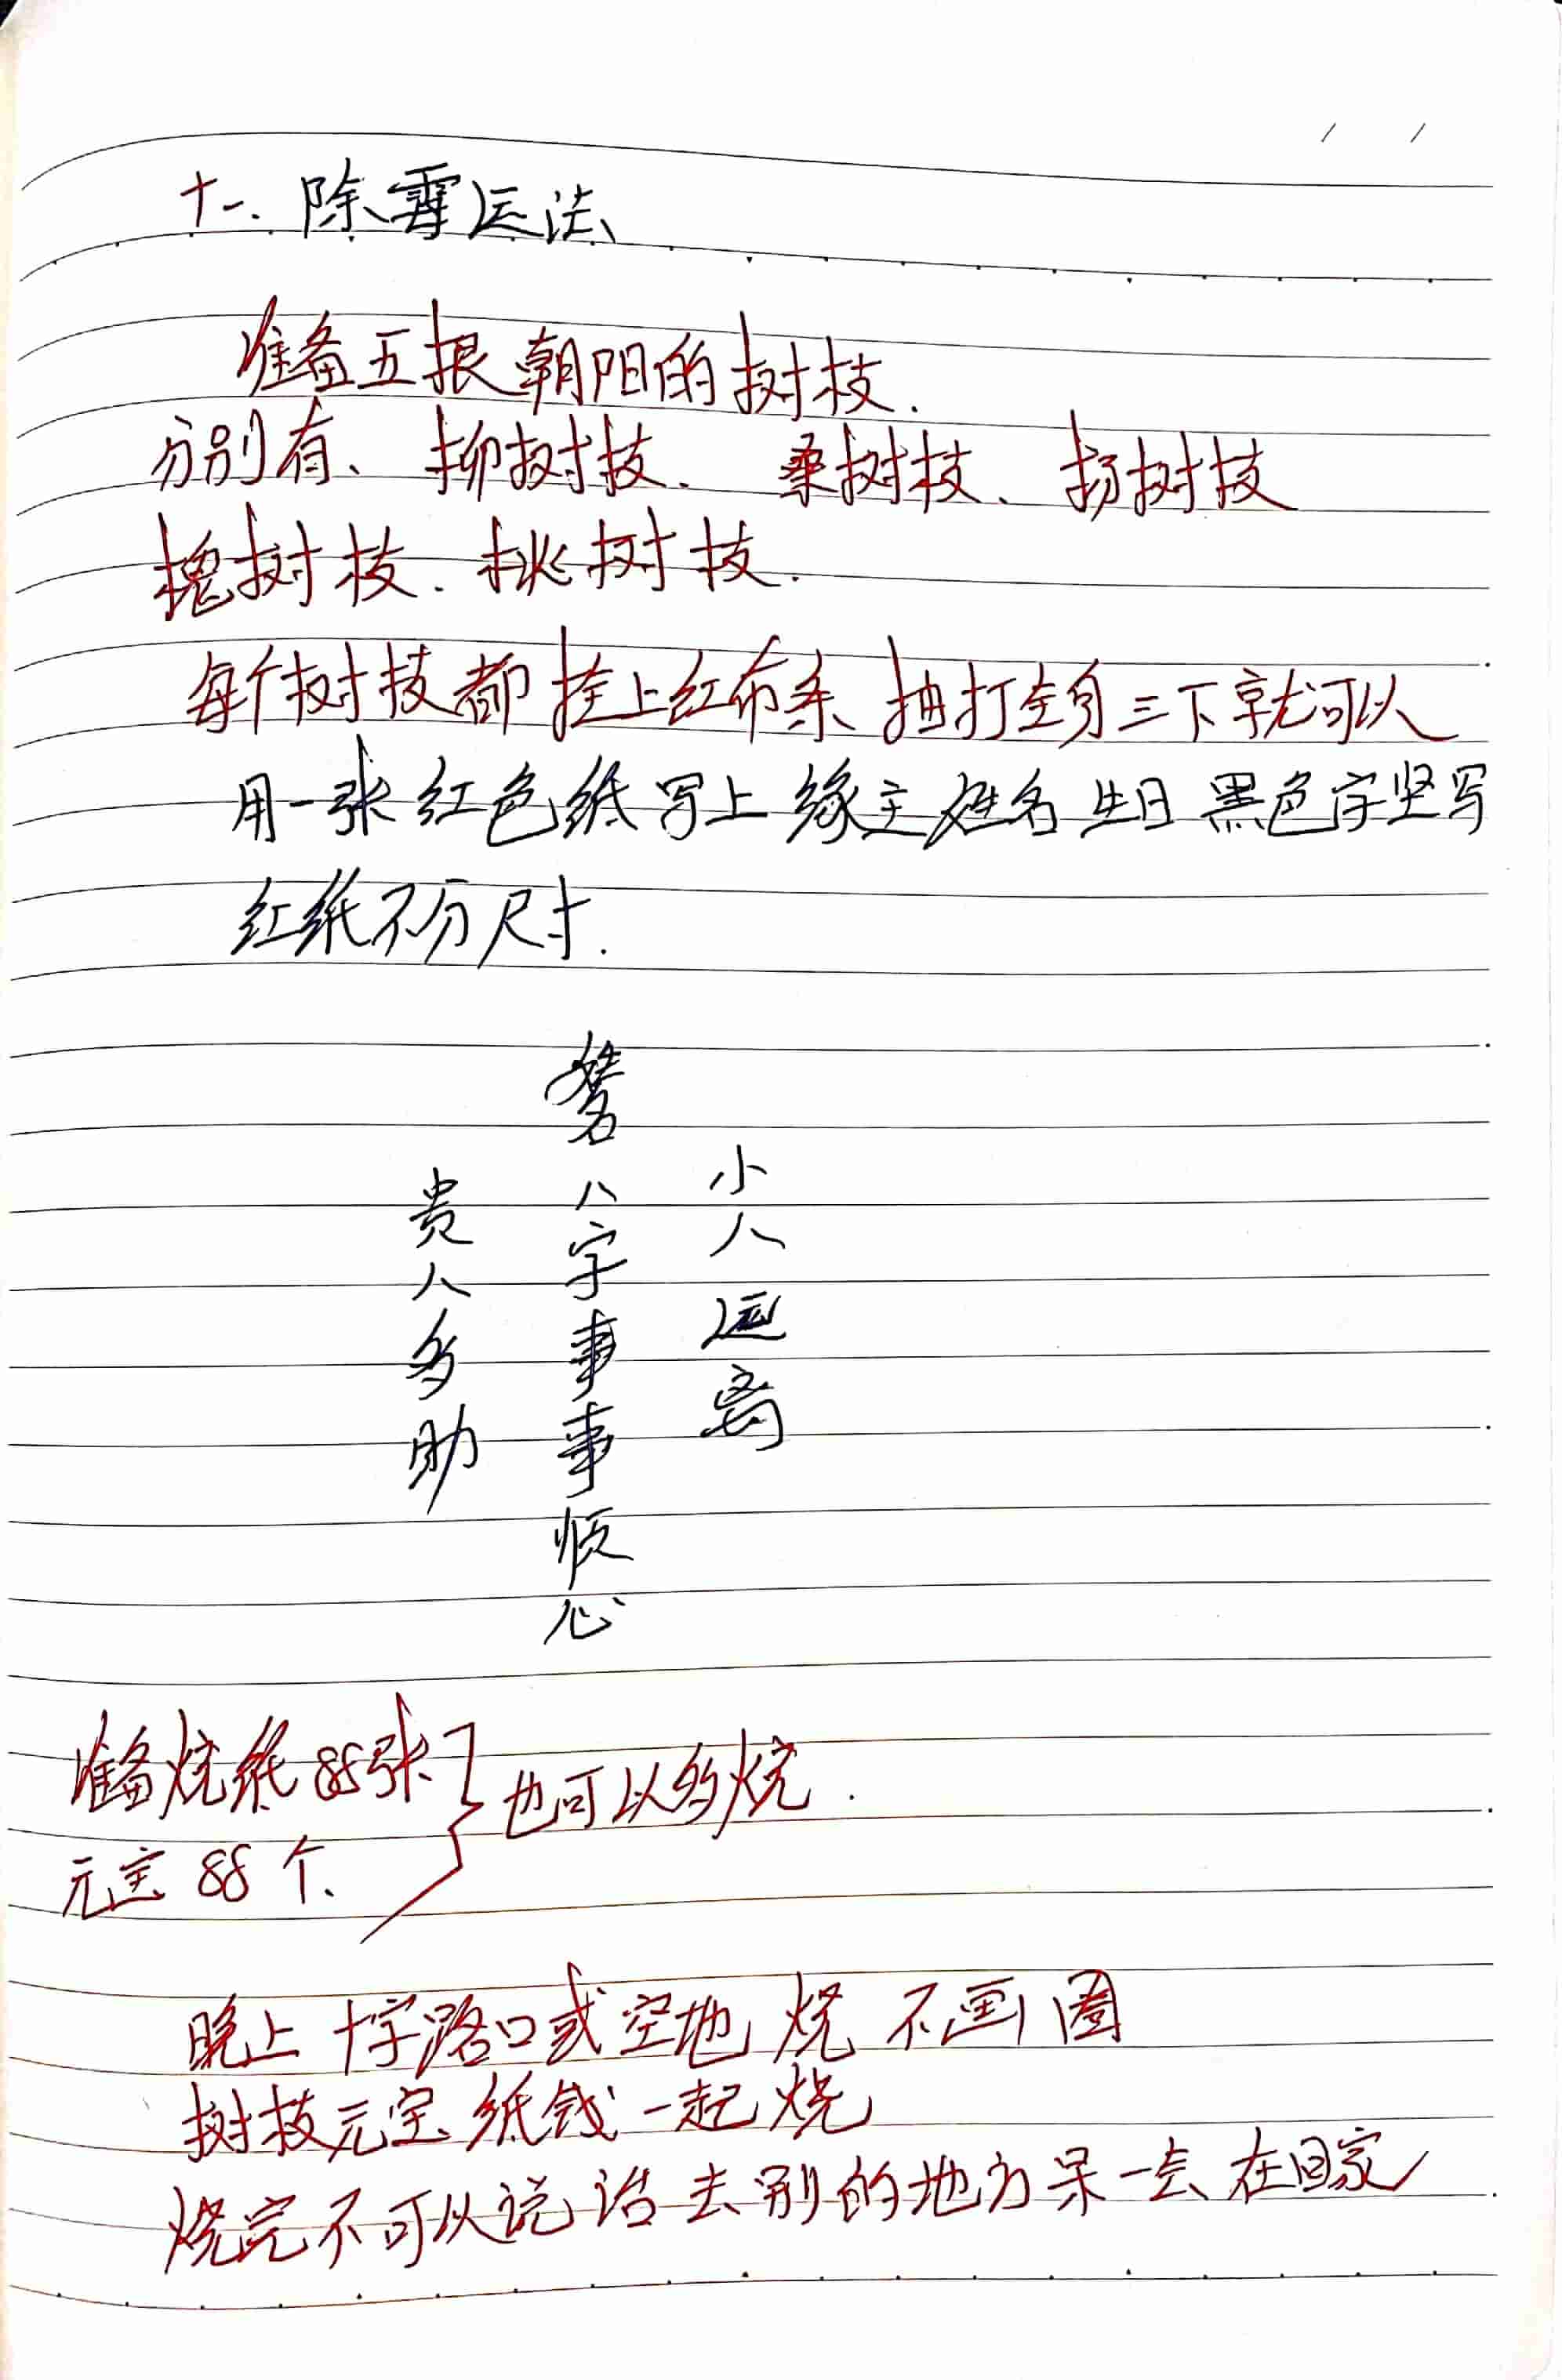 十一、除霉运法
准备五根朝阳的树枝.
分别有、柳树枝、桑树枝、扬树枝
槐树枝、桃树枝.
每个树枝都挂上红布条、抽打全身三下就可以
用一张红色纸写上缘主姓名生日黑色字竖写
红纸不分尺寸.
姓名八字事事顺心
小人远离
贵人多助
准备烧纸88张
元宝88个、
也可以多烧.
晚上十字路口或空地烧不画圈
树枝元宝纸钱一起烧
烧完不可以说话去别的地方呆一会在回家